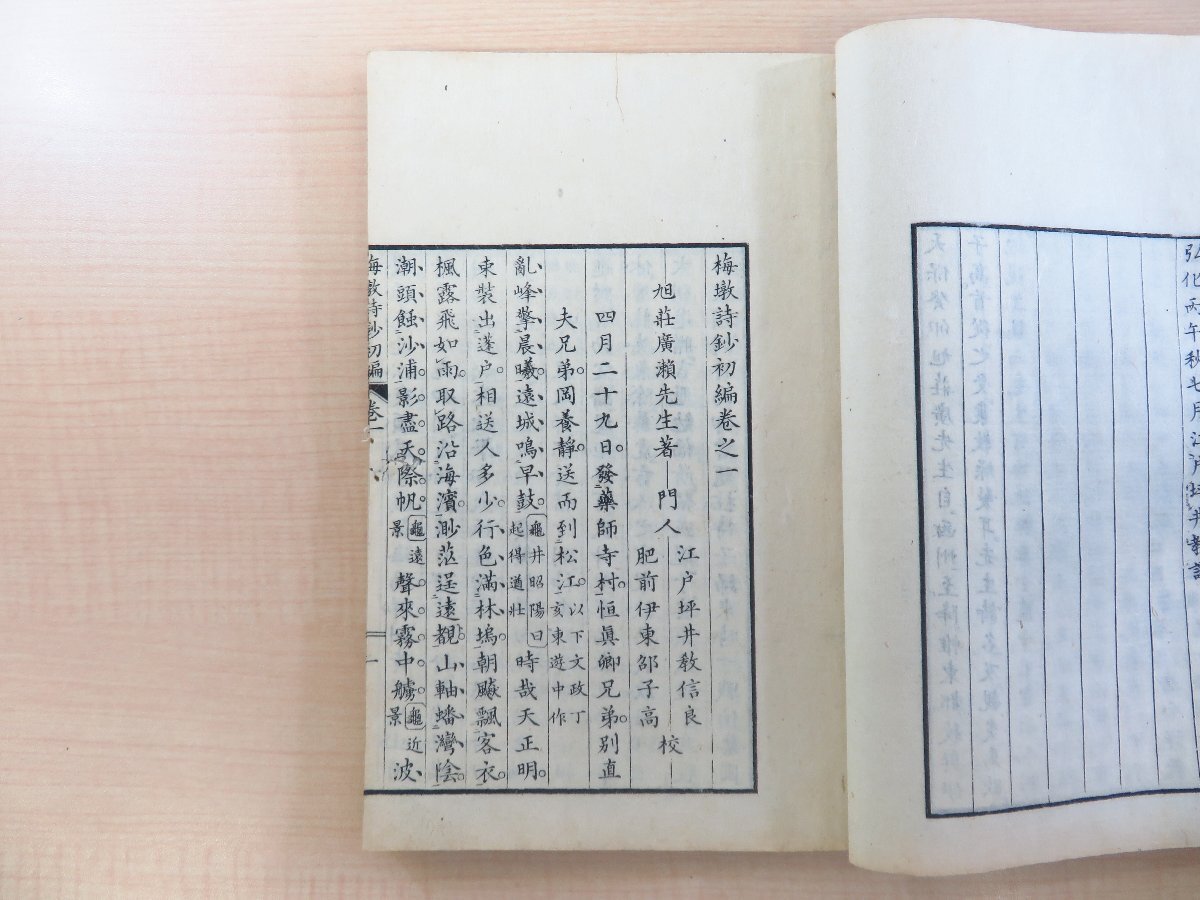 弘化丙午秋七月江戶坪井教識
梅墩詩鈔初編卷之一
旭莊廣瀨先生著
門人
江戶坪井教信良
肥前伊東邵子高
校
四月二十九日。發藥師寺村。恒眞卿兄弟。別直
夫兄弟岡養靜送而到松江。以下文政丁亥東遊中作
亂峰擎晨曦。遠城鳴早鼓。龜井昭陽曰起得遒壯時哉天正明。
束裝出蓬戶。相送人多少。行色滿林塢。朝飈飄客衣。
楓露飛如雨。取路沿海濱。渺茫逞遠覩。山軸蟠灣陰。
潮頭蝕沙浦。影盡天際帆。龜遠景聲來霧中艣。龜近景波
梅墩詩鈔初編
卷一
一